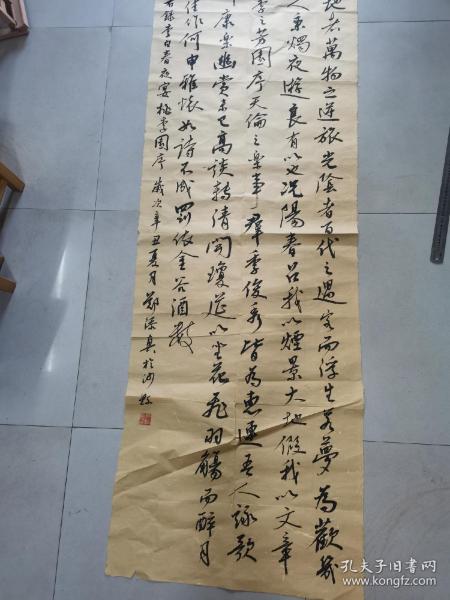 地者萬物之逆旅光陰者百代之過客而浮生若夢為歡幾
人秉燭夜遊良有以也況陽春召我以煙景大地假我以文章
李之芳園序天倫之樂事群季俊秀皆為惠連吾人詠歌
康樂幽賞未已高談轉清開瓊筵以坐花飛羽觴而醉月
佳作何申雅懷如詩不成罰依金谷酒數
右錄李白春夜宴桃李園序 歲次辛丑夏月鄭於
孔夫子旧书网
www.kongfz.com